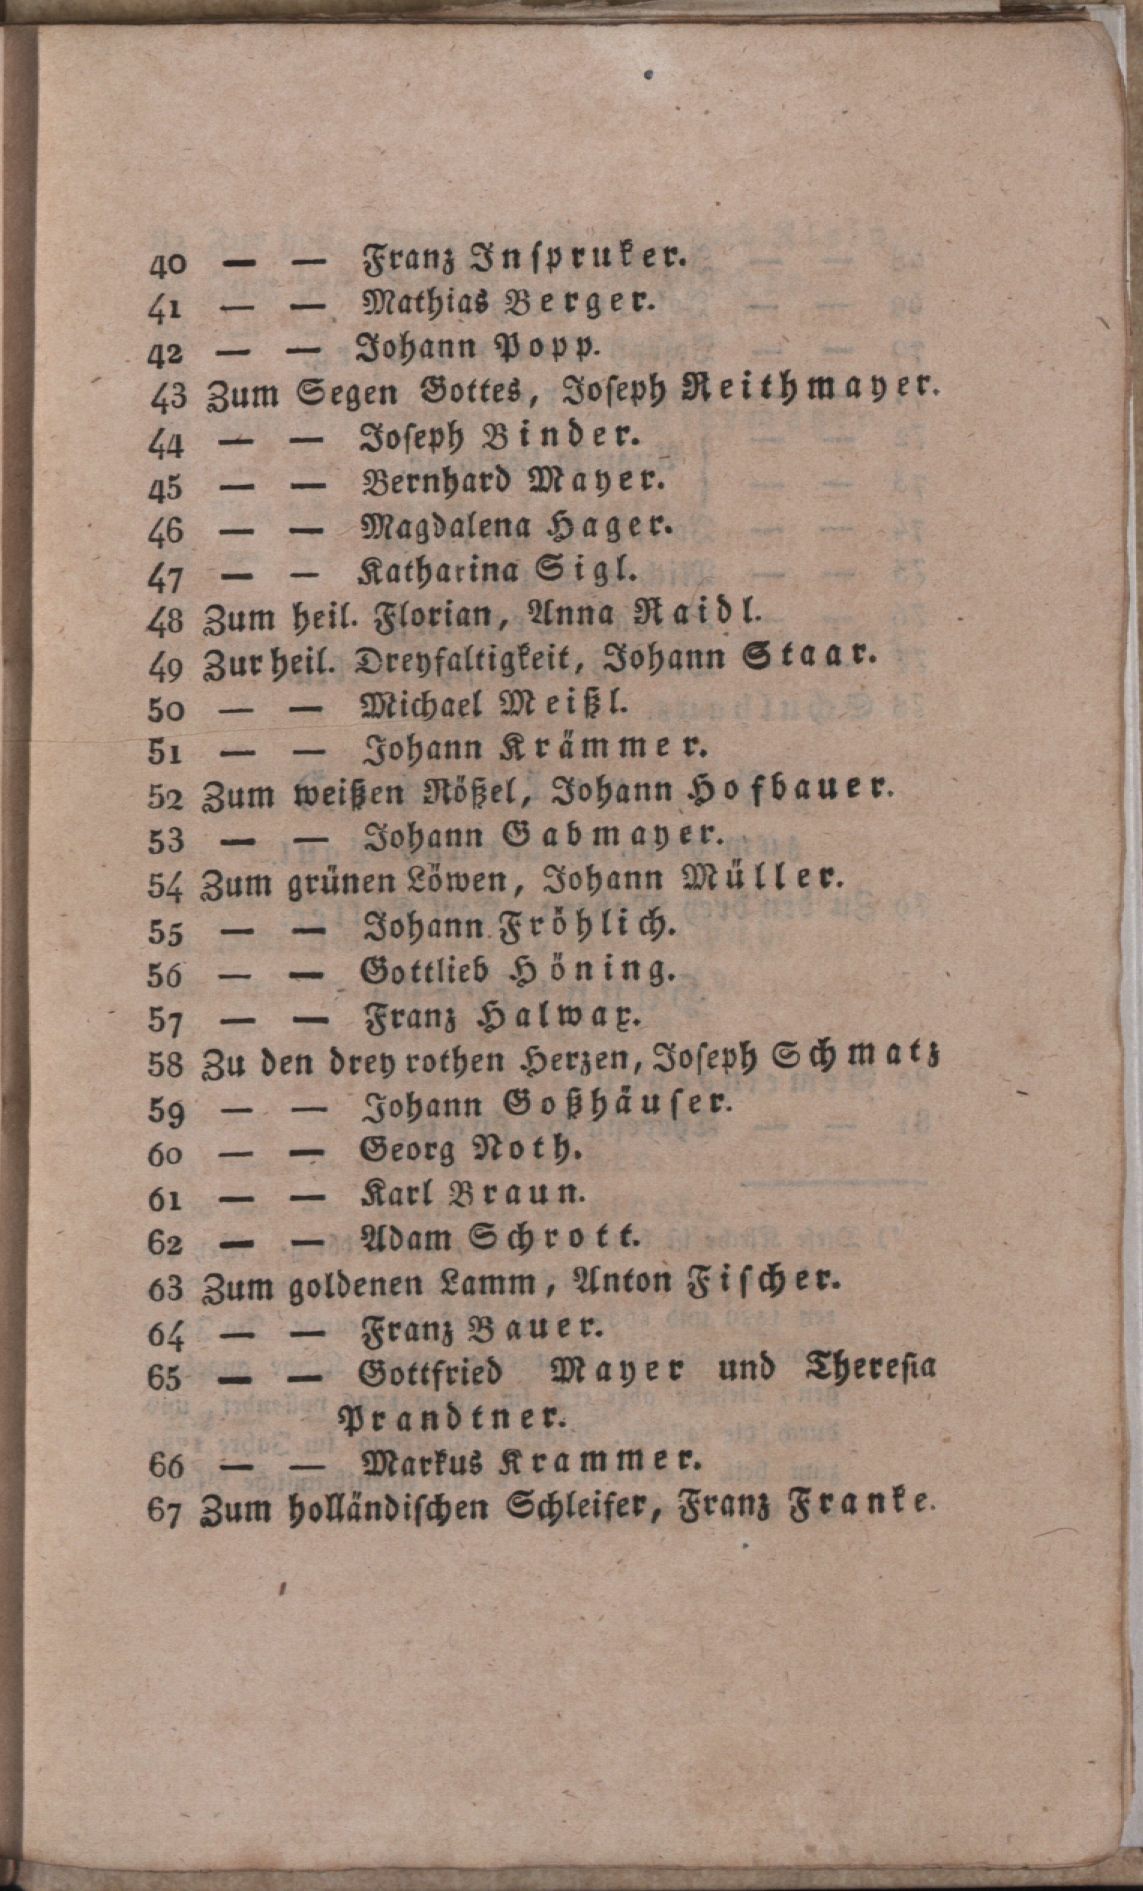 40 — — Franz Inspruker.
41 — — Mathias Berger.
42 — — Johann Popp.
43 Zum Segen Gottes, Joseph Reithmayer.
44 — — Joseph Binder.
45 — — Bernhard Mayer.
46 — — Magdalena Hager.
47 — — Katharina Sigl.
48 Zum heil. Florian, Anna Raidl.
49 Zur heil. Dreyfaltigkeit, Johann Staar.
50 — — Michael Meißl.
51 — — Johann Krämmer.
52 Zum weißen Rößel, Johann Hofbauer.
53 — — Johann Gabmayer.
54 Zum grünen Löwen, Johann Müller.
55 — — Johann Fröhlich.
56 — — Gottlieb Höning.
57 — — Franz Halwax.
58 Zu den drey rothen Herzen, Joseph Schmatz
59 — — Johann Goßhäuser.
60 — — Georg Noth.
61 — — Karl Braun.
62 — — Adam Schrott.
63 Zum goldenen Lamm, Anton Fischer.
64 — — Franz Bauer.
65 — — Gottfried Mayer und Theresia
Prandtner.
66 — — Markus Krammer.
67 Zum holländischen Schleifer, Franz Franke.